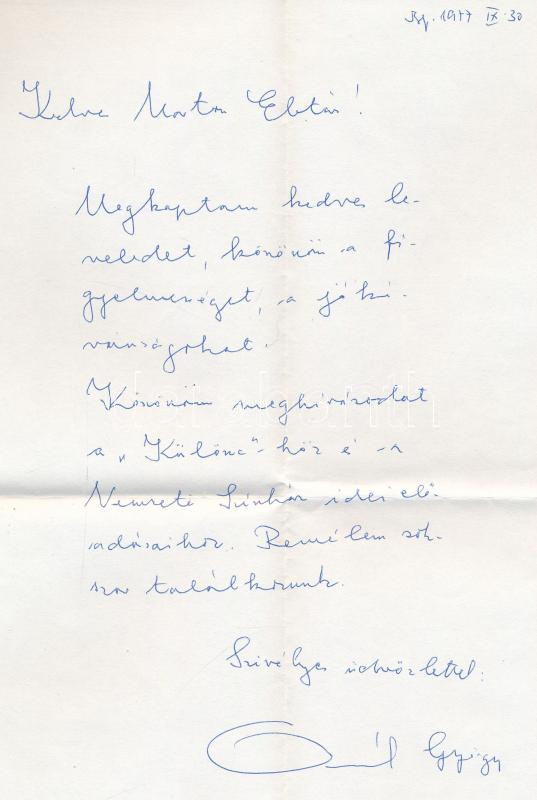 Bp. 1977 IX. 30
Kedves Marton Elvtárs!
Megkaptam kedves le-
veledet, köszönöm a fi-
gyelmességet, a jókí-
vánságokat.
Köszönöm meghívásodat
a „Különc"-höz és a
Nemzeti Színház idei elő-
adásaihoz. Remélem sok-
szor találkozunk.
Szívélyes üdvözlettel:
Aczél György